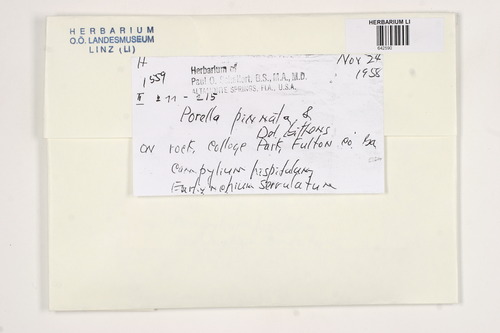 HERBARIUM
O.Ö. LANDESMUSEUM
LINZ (LI)
HERBARIUM LI
H
1559
Herbarium of
Paul O. Schallert, B.S., M.A., M.D.
ALTAMONTE SPRINGS, FLA., U.S.A.
Nov 24
1958
II ± 11 - 215
Porella pinnata &
on rock, College Park, Fulton Co. Ga
Campylium hispidulum
Eurhynchium serrulatum